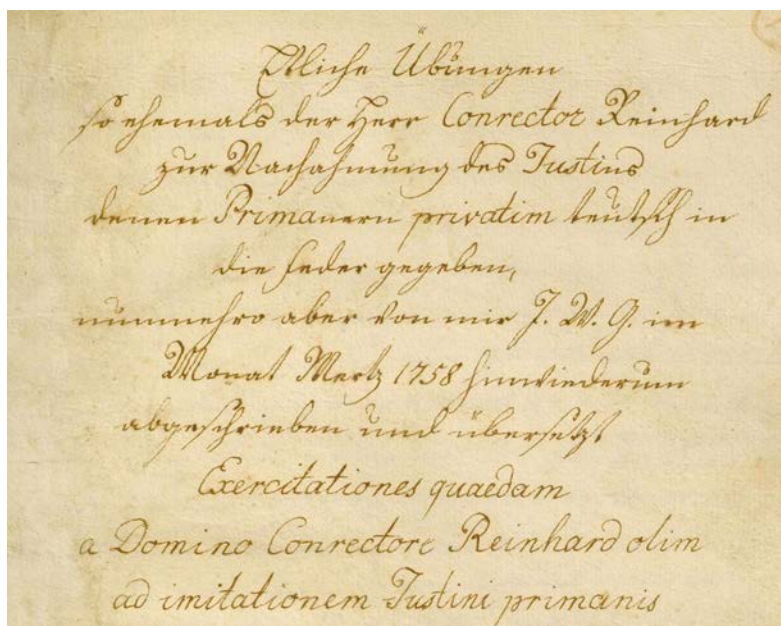 Etliche Übungen
so ehemals der Herr Conrector Reinhard
zur Nachahmung des Justins
denen Primanern privatim teutsch in
die Feder gegeben,
nunmehro aber von mir J. W. G. im
Monat Mertz 1758 hinwiederum
abgeschrieben und übersetzt
Exercitationes quaedam
a Domino Conrectore Reinhard olim
ad imitationem Justini primanis